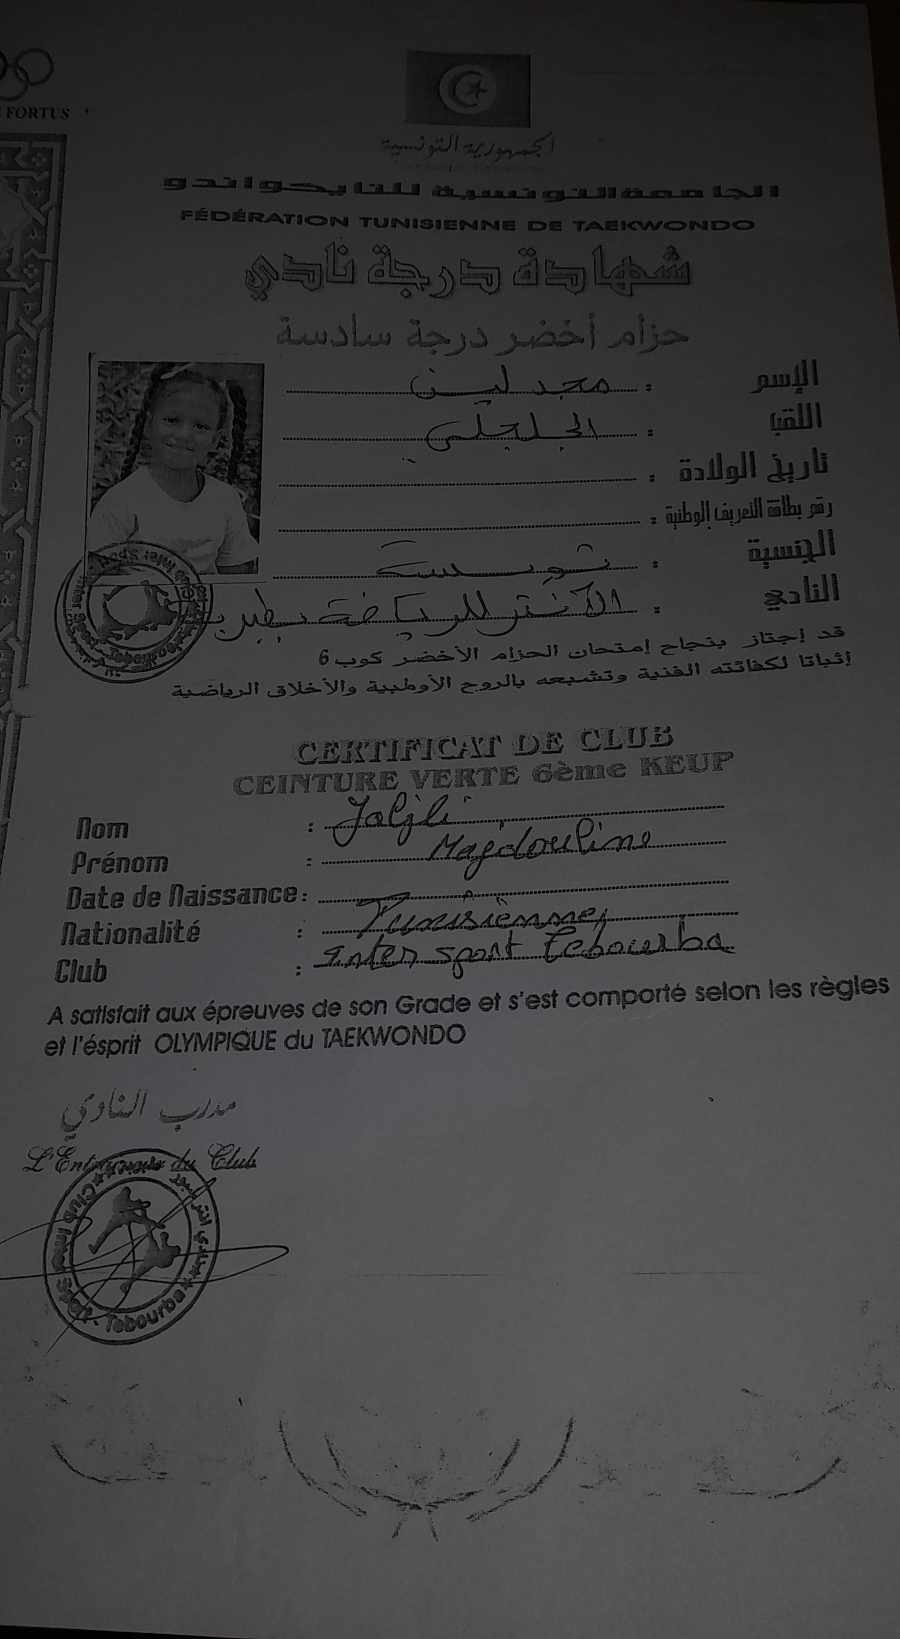 FORTUS
الجمهورية التونسية
الجامعة التونسية للتايكواندو
FÉDÉRATION TUNISIENNE DE TAEKWONDO
شهادة درجة نادي
حزام أخضر درجة سادسة
الإسم : مجدلين
اللقب : الجلجلي
تاريخ الولادة :
رقم بطاقة التعريف الوطنية :
الجنسية : تونسية
النادي : الأنتر للرياضة بطبربة
قد إجتاز بنجاح إمتحان الحزام الأخضر كوب 6
إثباتا لكفائته الفنية وتشبعه بالروح الأوطبية والأخلاق الرياضية
CERTIFICAT DE CLUB
CEINTURE VERTE 6ème KEUP
Nom : Jaljli
Prénom : Majdouline
Date de Naissance :
Nationalité : Tunisienne
Club : Inter sport Tebourba
A satisfait aux épreuves de son Grade et s'est comporté selon les règles
et l'ésprit OLYMPIQUE du TAEKWONDO
مدرب النادي
L'Entraineur du Club
Club Inter Sport Tebourba